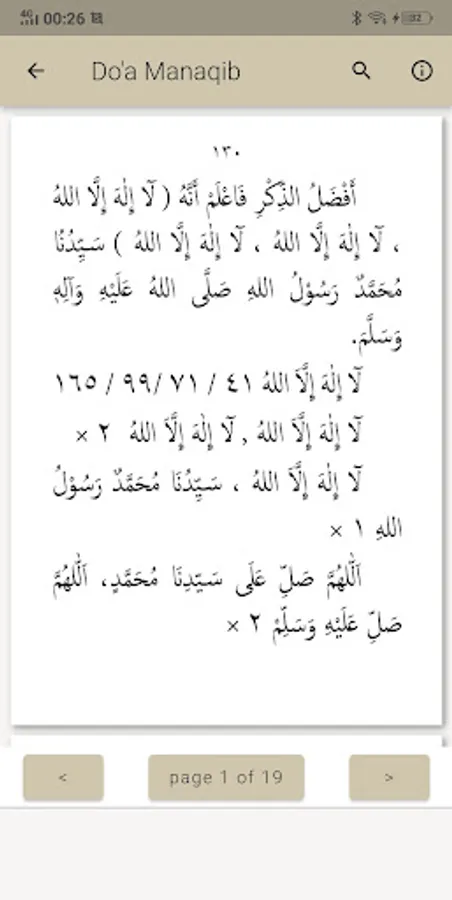 4G 00:26 82
Do'a Manaqib
١٣٠
أَفْضَلُ الذِّكْرِ فَاعْلَمْ أَنَّهُ ( لَآ إِلٰهَ إِلَّا اللهُ
، لَآ إِلٰهَ إِلَّا اللهُ ، لَآ إِلٰهَ إِلَّا اللهُ ) سَيِّدُنَا
مُحَمَّدٌ رَسُوْلُ اللهِ صَلَّى اللهُ عَلَيْهِ وَآلِهِ
وَسَلَّمَ.
لَآ إِلٰهَ إِلَّا اللهُ ٤١ / ٧١ /٩٩ / ١٦٥
لَآ إِلٰهَ إِلَّا اللهُ , لَآ إِلٰهَ إِلَّا اللهُ ٢ ×
لَآ إِلٰهَ إِلَّا اللهُ ، سَيِّدُنَا مُحَمَّدٌ رَسُوْلُ
اللهِ ١ ×
اَللّٰهُمَّ صَلِّ عَلَى سَيِّدِنَا مُحَمَّدٍ، اَللّٰهُمَّ
صَلِّ عَلَيْهِ وَسَلِّمْ ٢ ×
< page 1 of 19 >